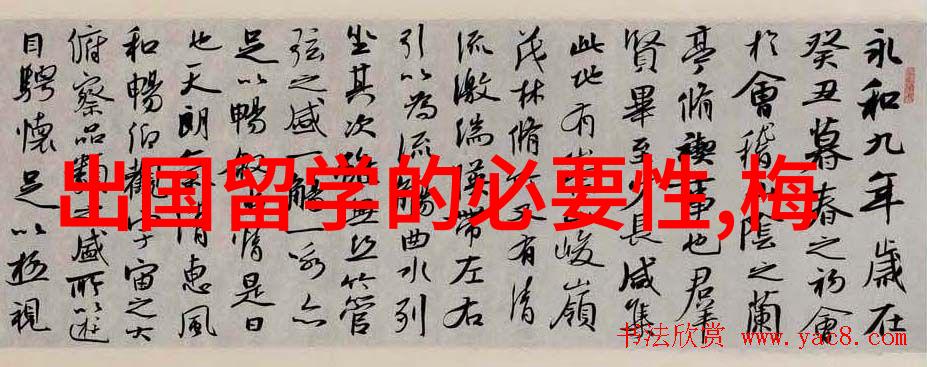 永和九年歲在
癸丑暮春之初會
於會稽山陰之蘭
亭脩禊事也群
賢畢至少長咸集
此地有山峻嶺
茂林脩又有清
流激湍映帶左右
引以為流觴曲水列
坐其次無絲竹管
弦之盛一觴一詠亦
足以暢情是日
也天朗氣清惠風
和暢仰觀宇宙之大
俯察品類之盛所以遊
目騁懷足以極視
出国留学的必要性,梅
书法欣赏 www.yac8.com